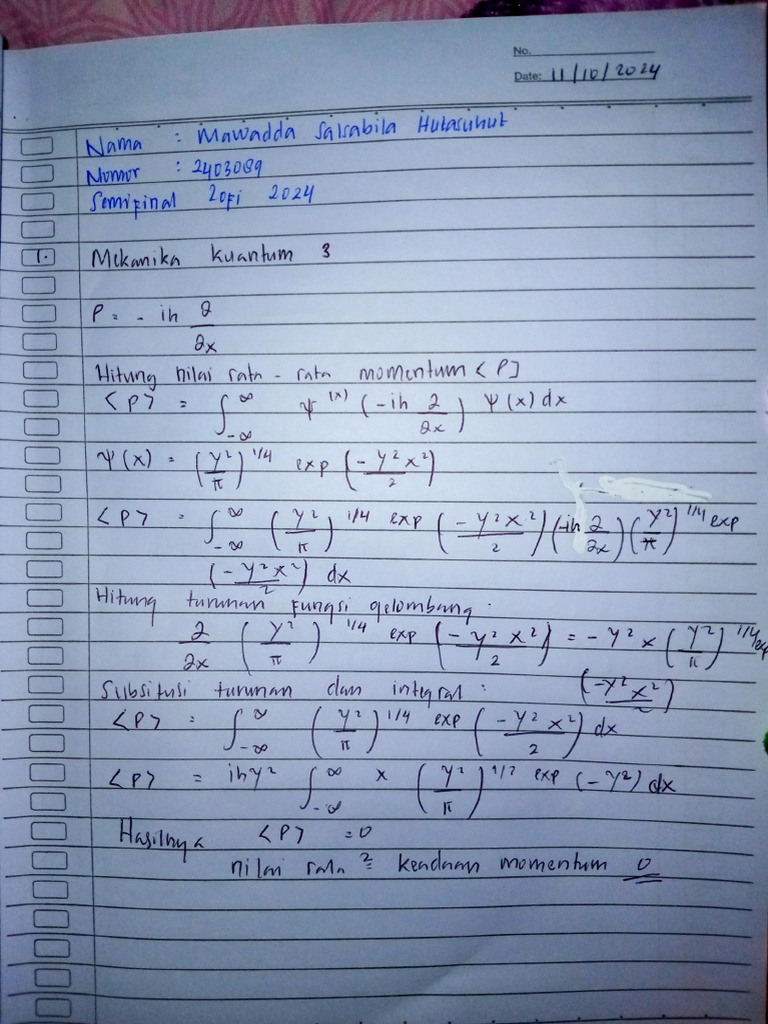 No.
Date: 11/10/2024
Nama : Mawadda Salsabila Hutasuhut
Nomor : 2403089
Semifinal 2024
1. Mekanika Kuantum 3
P = - ih ∂/∂x
Hitung nilai rata - rata momentum <P]
<P> = ∫_-∞^∞ Ψ^(x) (-ih ∂/∂x) Ψ(x) dx
Ψ(x) = (γ²/π)^1/4 exp (-γ²x²/2)
<P> = ∫_-∞^∞ (γ²/π)^1/4 exp (-γ²x²/2) (-ih ∂/∂x) (γ²/π)^1/4 exp
(-γ²x²/2) dx
Hitung turunan fungsi gelombang.
∂/∂x (γ²/π)^1/4 exp (-γ²x²/2) = -γ²x (γ²/π)^1/4 exp
(-γ²x²/2)
Subsitusi turunan dan integral :
<P> = ∫_-∞^∞ (γ²/π)^1/4 exp (-γ²x²/2) dx
<P> = ihγ² ∫_-∞^∞ x (γ²/π)^1/2 exp (-γ²) dx
Hasilnya <P> = 0
nilai rata ² keadaan momentum 0